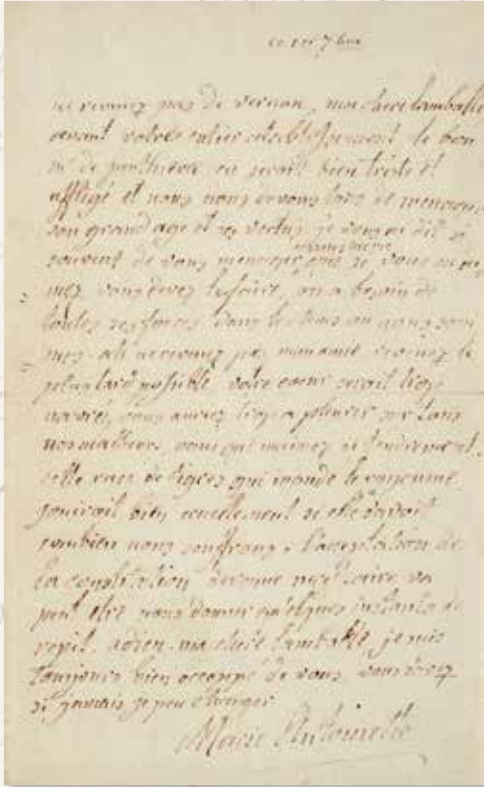 ne revenez pas de vernon, ma chere lamballe
avant votre entier retablissement le bon
mr de penthievre en serait bien triste et
affligé et nous nous devons tous de menager
son grand age et ses vertus. je vous ai dit si
souvent de vous menager
que si vous
mez vous devez le faire, on a besoin de
toutes ses forces dans les tems ou nous som
mes. ah ne revenez pas mon amie revenez le
plus tard possible votre coeur serait trop
navré, vous auriez trop a pleurer sur tous
nos malheurs, vous qui m'aimez si tendrement.
cette race de tigres qui inonde le royaume
jouirait bien cruellement si elle savait
combien nous souffrons. l'acceptation de
la constitution devenue va
peut etre nous donner quelques instants de
repit. adieu, ma chere lamballe je suis
toujours bien occupé de vous, vous savez
si jamais je peu changer
Marie Antoinette